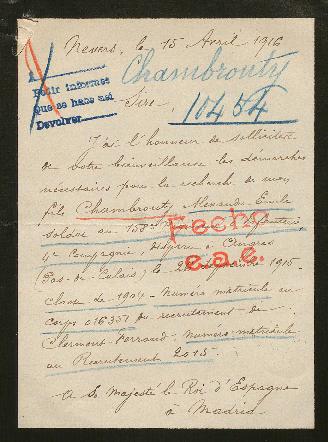 Nevers, le 15 Avril 1916
Chambrouty
Pedir informes
Que se hace así
Devolver
Sire,
10454
J'ai l'honneur de solliciter
de votre bienveillance les démarches
nécessaires pour la recherche de mon
fils Chambrouty Alexandre Emile
soldat au 158e Infanterie,
4e Compagnie, disparu à Angres
(Pas-de-Calais) le 1915-
Fecho
e.a.e.
Classe de 1904 - Numéro matricule au
corps 016351 du recrutement de
Clermont-Ferrand - numéro matricule
au Recrutement 2015.
A Sa Majesté le Roi d'Espagne
à Madrid